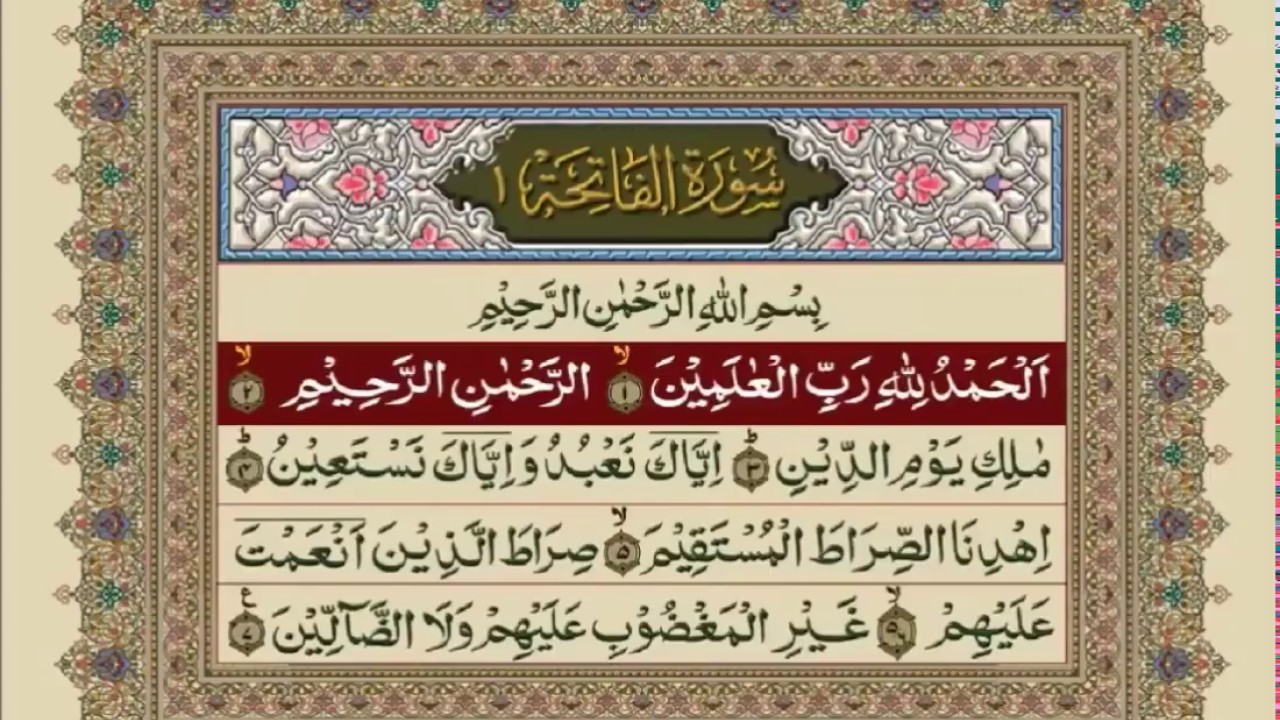 سُوْرَةُ الْفَاتِحَةِ ١
بِسْمِ اللهِ الرَّحْمٰنِ الرَّحِيْمِ
اَلْحَمْدُ لِلّٰهِ رَبِّ الْعٰلَمِيْنَ ۙ ١ الرَّحْمٰنِ الرَّحِيْمِ ۙ ٢
مٰلِكِ يَوْمِ الدِّيْنِ ؕ ٣ اِيَّاكَ نَعْبُدُ وَاِيَّاكَ نَسْتَعِيْنُ ؕ ۴
اِهْدِنَا الصِّرَاطَ الْمُسْتَقِيْمَ ۙ ۵ صِرَاطَ الَّذِيْنَ اَنْعَمْتَ
عَلَيْهِمْ ۙ غَيْرِ الْمَغْضُوْبِ عَلَيْهِمْ وَلَا الضَّآلِّيْنَ ٧ ع